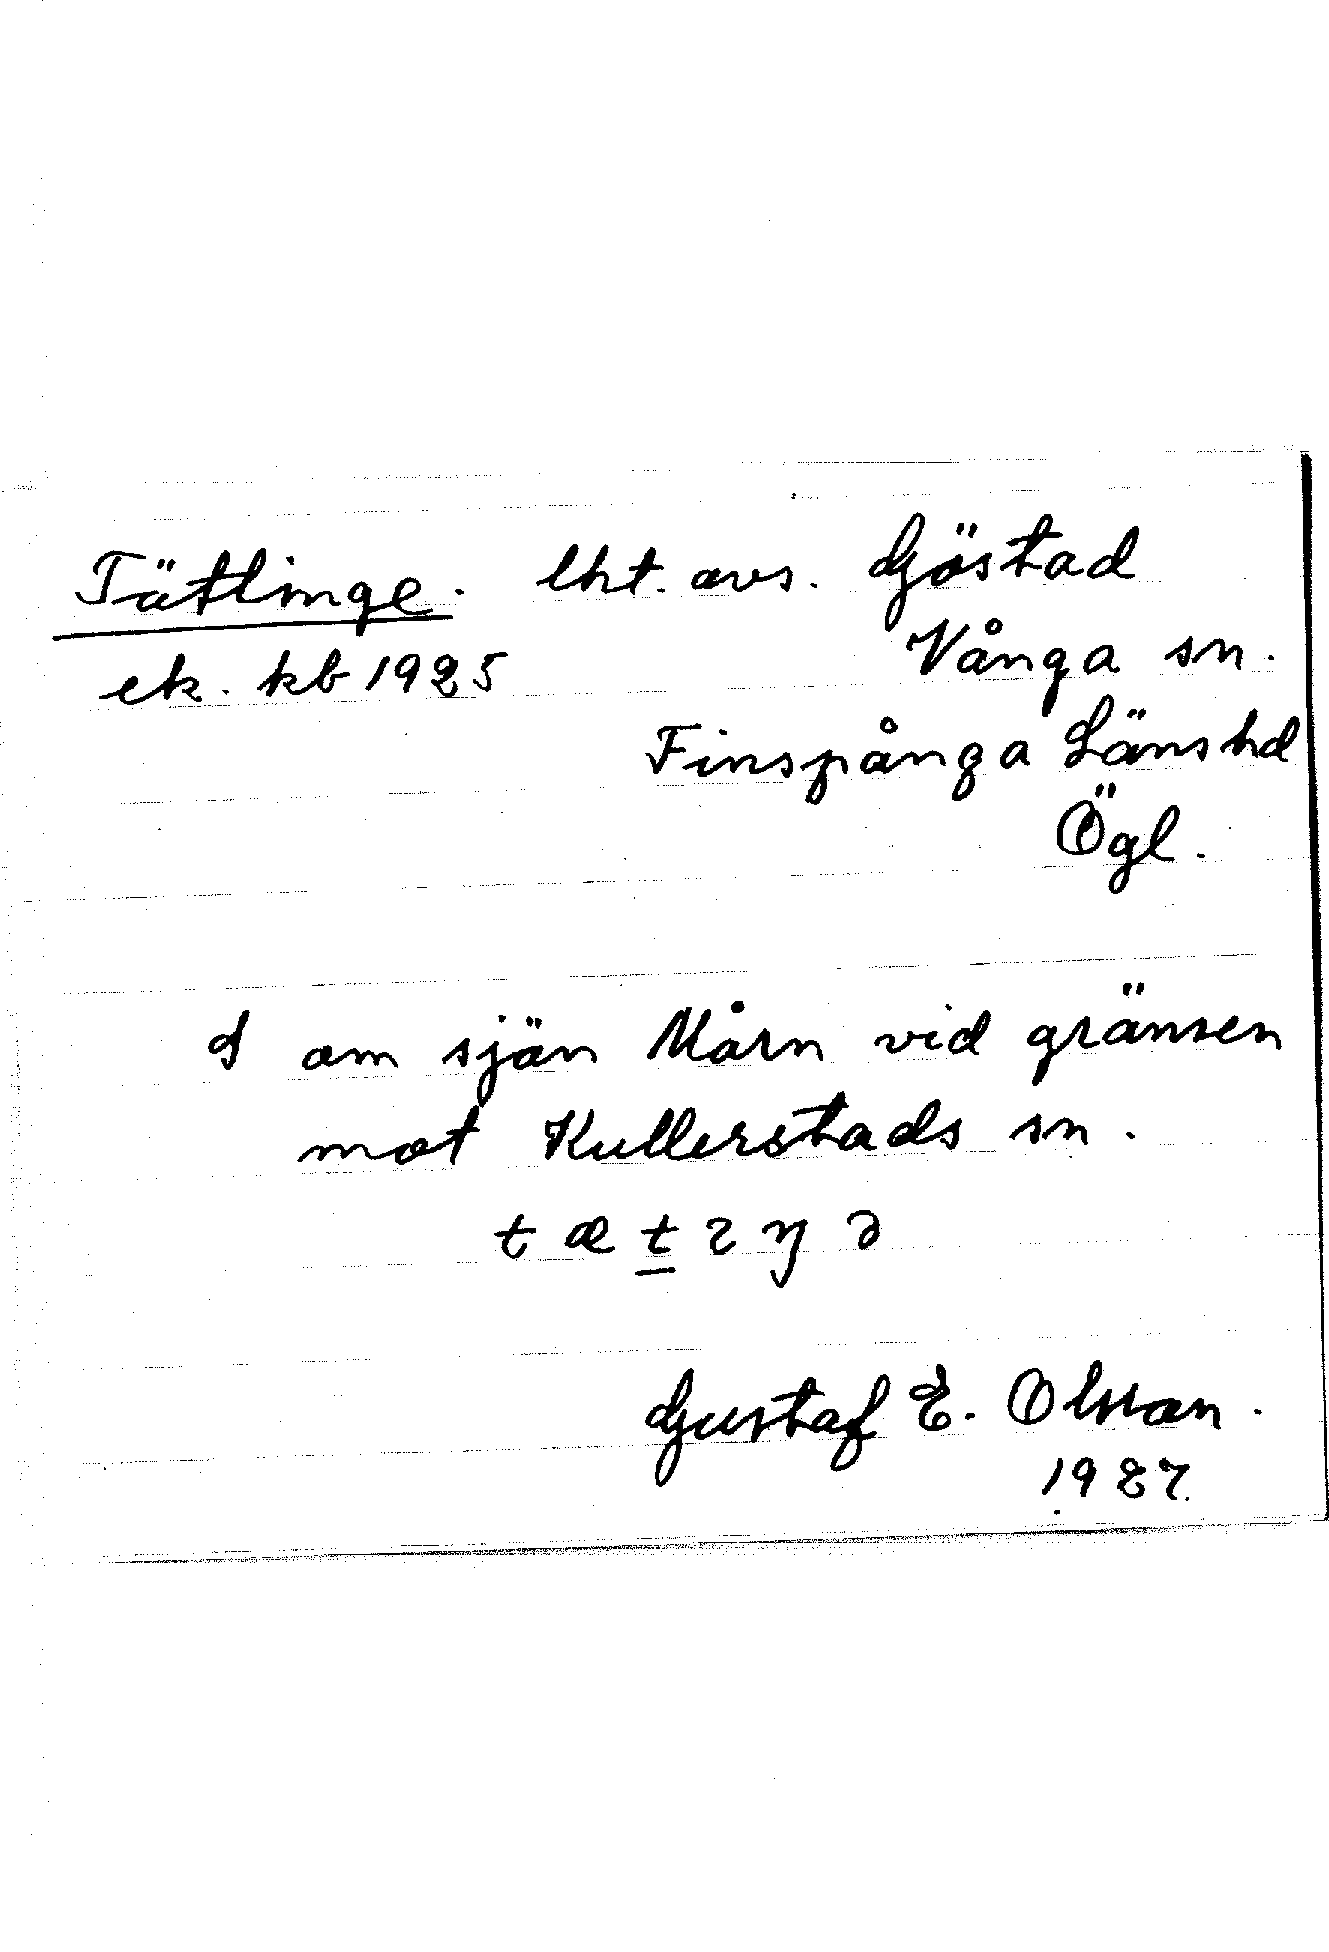 Tätlinge. lht. avs. Göstad
ek. kb 1925 Vånga sn.
Finspånga Länshd
Ögl.
S om sjön Mårn vid gränsen
mot Kullerstads sn.
t æ t ɿ ŋ ə
Gustaf E. Olsson.
1927.